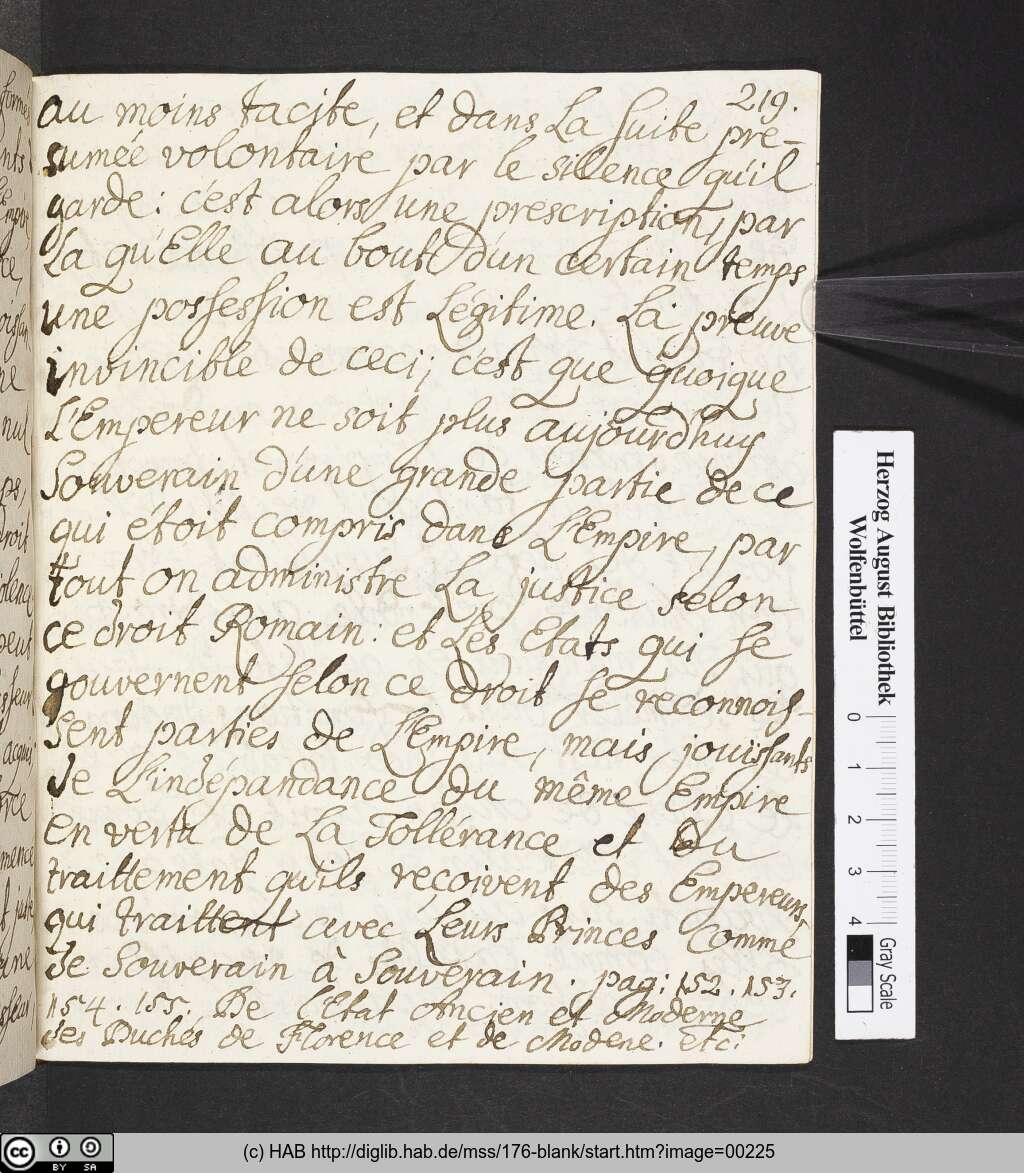 219.
au moins tacite, et dans La suite pre-
sumée volontaire par le sillence qu'il
garde: c'est alors une prescription, par
La qu'Elle au bout d'un certain temps
une possession est Légitime. La preuve
invincible de ceci; c'est que quoique
L'Empereur ne soit plus aujourdhuy
Souverain d'une grande partie de ce
qui étoit compris dans L'Empire, par
tout on administre La justice selon
ce droit Romain: et Les Etats qui se
gouvernent selon ce droit se reconnois-
sent parties de L'Empire, mais jouissants
de L'indépandance du même Empire
en vertu de La Tollérance et du
traittement qu'ils reçoivent des Empereurs,
qui traittent avec Leurs Princes Comme
de Souverain à Souverain. pag: 152. 153.
154. 155. De l'Etat Ancien et Moderne
des Duchés de Florence et de Modene. etc:
Herzog August Bibliothek
Wolfenbüttel
0 1 2 3 4
Gray Scale
cc BY SA
(c) HAB http://diglib.hab.de/mss/176-blank/start.htm?image=00225